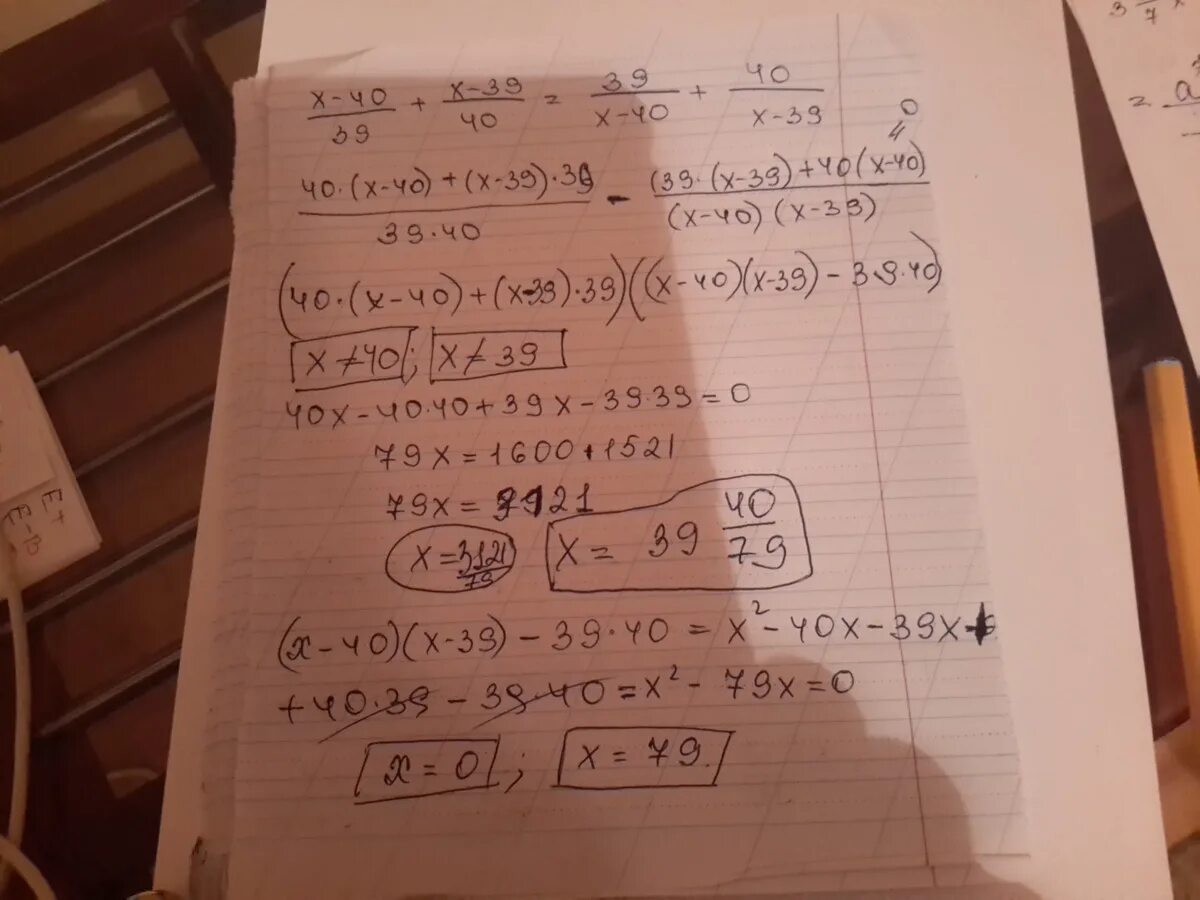 x-40/39 + x-39/40 = 39/x-40 + 40/x-39
40·(x-40)+(x-39)·39/39·40 - (39·(x-39)+40(x-40)/(x-40)(x-39)
(40·(x-40)+(x-39)·39)((x-40)(x-39)-39·40)
x≠40; x≠39
40x-40·40+39x-39·39=0
79x=1600+1521
79x=3121
x=3121/79 x=39 40/79
(x-40)(x-39)-39·40=x²-40x-39x+
+40·39-39·40=x²-79x=0
x=0; x=79.
3 /7 x
= a
E+
E-B